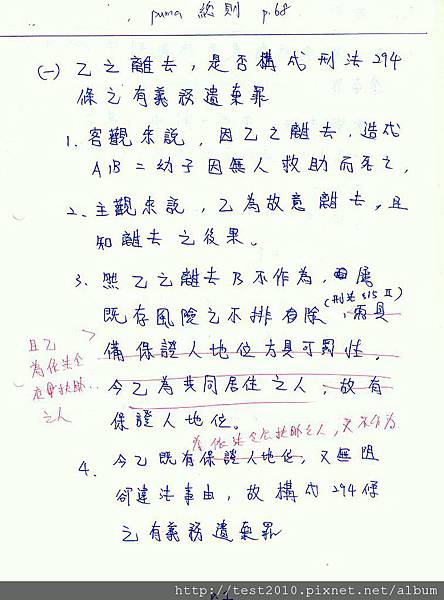 puma 總則 p.68
(一) 乙之離去，是否構成刑法294
條之有義務遺棄罪
1. 客觀來說，因乙之離去，造成
A、B二幼子因無人救助而死亡，
2. 主觀來說，乙為故意離去，且
知離去之後果。
3. 然乙之離去乃不作為，屬
既存風險之不排除(刑法§15 II)，需具
備保證人地位方具可罰性，
今乙為共同居住之人，故有
保證人地位。
且乙
為依法令
應扶助
之人
為依法令應扶助之人，又不作為
4. 今乙既有保證人地位，又無阻
卻違法事由，故構成294條
之有義務遺棄罪
http://test2010.pixnet.net/album